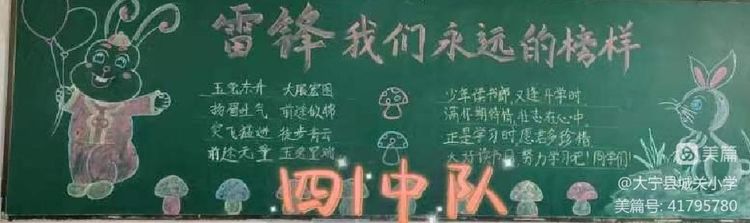 雷锋我们永远的榜样
玉兔东升 大展宏图
扬眉吐气 前途似锦
突飞猛进 徒步青云
前途无量 玉兔呈瑞
少年读书郎,又逢开学时,
满怀期待情,壮志在心中。
正是学习时,愿君多珍惜。
大好读书日,努力学习吧!同学们!
四1中队
美篇
@大宁县城关小学
美篇号: 41795780